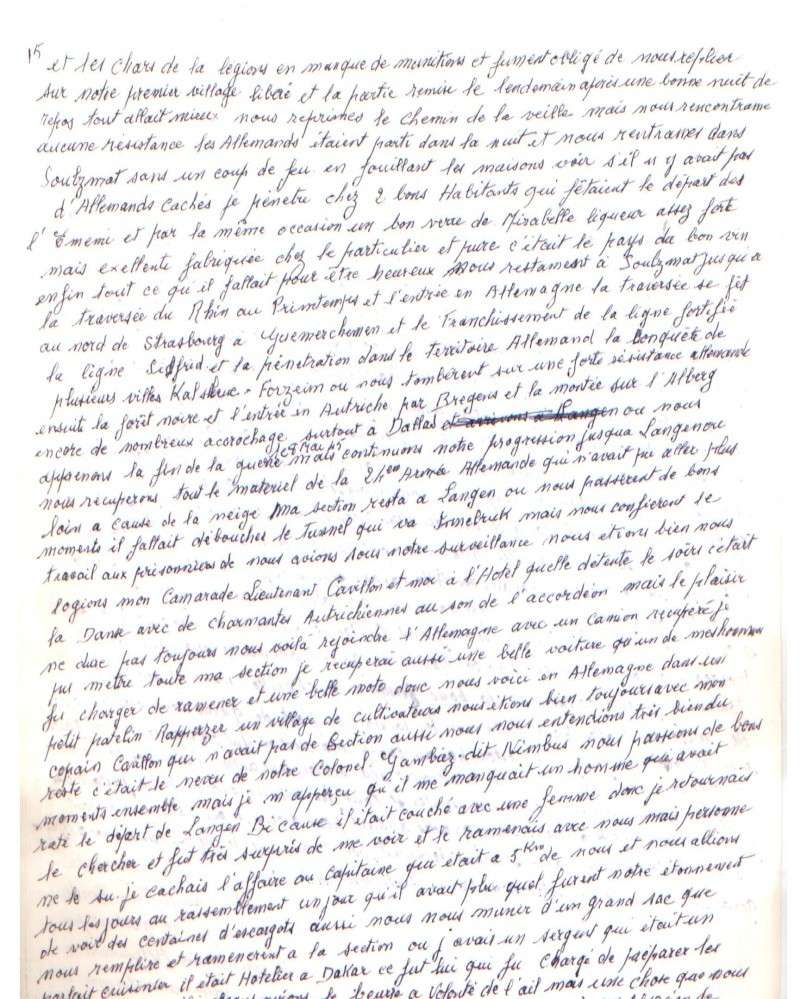 15
et les chars de la legions en manque de munitions et fument obligé de nous replier
sur notre premier village libéré et la partie remise le lendemain après une bonne nuit de
repos tout allait mieux nous reprimes le chemin de la veille mais nous rencontrame
aucune résistance les Allemands étaient parti dans la nuit et nous rentrames dans
Soultzmat sans un coup de feu en fouillant les maisons voir s'il n y avait pas
d'Allemands cachés je pénétre chez 2 bons Habitants qui fêtaient le départ des
l'Ememi et par la même occasion un bon verre de Mirabelle liqueur assez forte
mais exellente fabriquée chez le particulier et pure c'était le pays du bon vin
enfin tout ce qu'il fallait pour être heureux Nous restament à Soultzmat jusqu'a
la traversée du Rhin au Primtemps et l'entrée en Allemagne la traversée se fit
au nord de Strasbourg à Guemerchemen et le Franchissement de la ligne fortifié
la ligne Sigfrid et la pénetration dans le territoire Allemand la Conquête de
plusieurs villes Kalsruc - Forzeim ou nous tombérent sur une forte résistance allemande
ensuite la forêt noire et l'entrée en Autriche par Bregens et la montée sur l'Alberg
encore de nombreux acorochage surtout à Dallas et arrivons a Langen ou nous
appenons la fin de la guerre le 8 Mai 45 mais continuons notre progression jusqua Langen ou
nous recuperons tout le materiel de la 24em Armée Allemande qui n'avait pu aller plus
loin a cause de la neige Ma section resta a Langen ou nous passèrent de bons
moments il fallait débouches le tunnel qui va Innsbruck mais nous confièrent se
travail aux prisonniers de nous avions sous notre surveillance nous etions bien nous
logions mon Camarade Lieutenant Cavillon et moi à l'Hotel quelle détente le soirs c'était
la Danse avec de charmantes Autrichiennes au son de l'accordéon mais le plaisir
ne dure pas toujours nous voilà rejoindre l'Allemagne avec un camion recupéré je
pus metre toute ma section je recuperai aussi une belle voiture qu'un de mes hommes
fu charger de ramener et une belle moto donc nous voici en Allemagne dans un
petit patelin Rapperzer un village de cultivateurs nous étions bien toujours avec mon
copain Cavillon qui n'avait pas de Section aussi nous nous entendions très bien du
reste c'était le neveu de notre Colonel Gambiez dit Nimbus nous passions de bons
moments ensemble mais je m'apperçu qu'il me manquait un homme qui avait
raté le départ de Langen Bi cause il était couché avec une femme donc je retournais
le chercher et fut très surpris de me voir et le ramenais avec nous mais personne
ne le su je cachais l'affaire au capitaine qui était a 5 Km de nous et nous allions
tous les jours au rassemblement un jour qu'il avait plu quel furent notre étonnement
de voir des centaines d'escargots aussi nous nous munir d'un grand sac que
nous remplire et ramenèrent a la section ou j'avais un sergent qui était un
parfait cuisinier il était Hotelier a Dakar ce fut lui qui fu chargé de préparer les
le beurre a volonté de l'ail mais une chose que nous